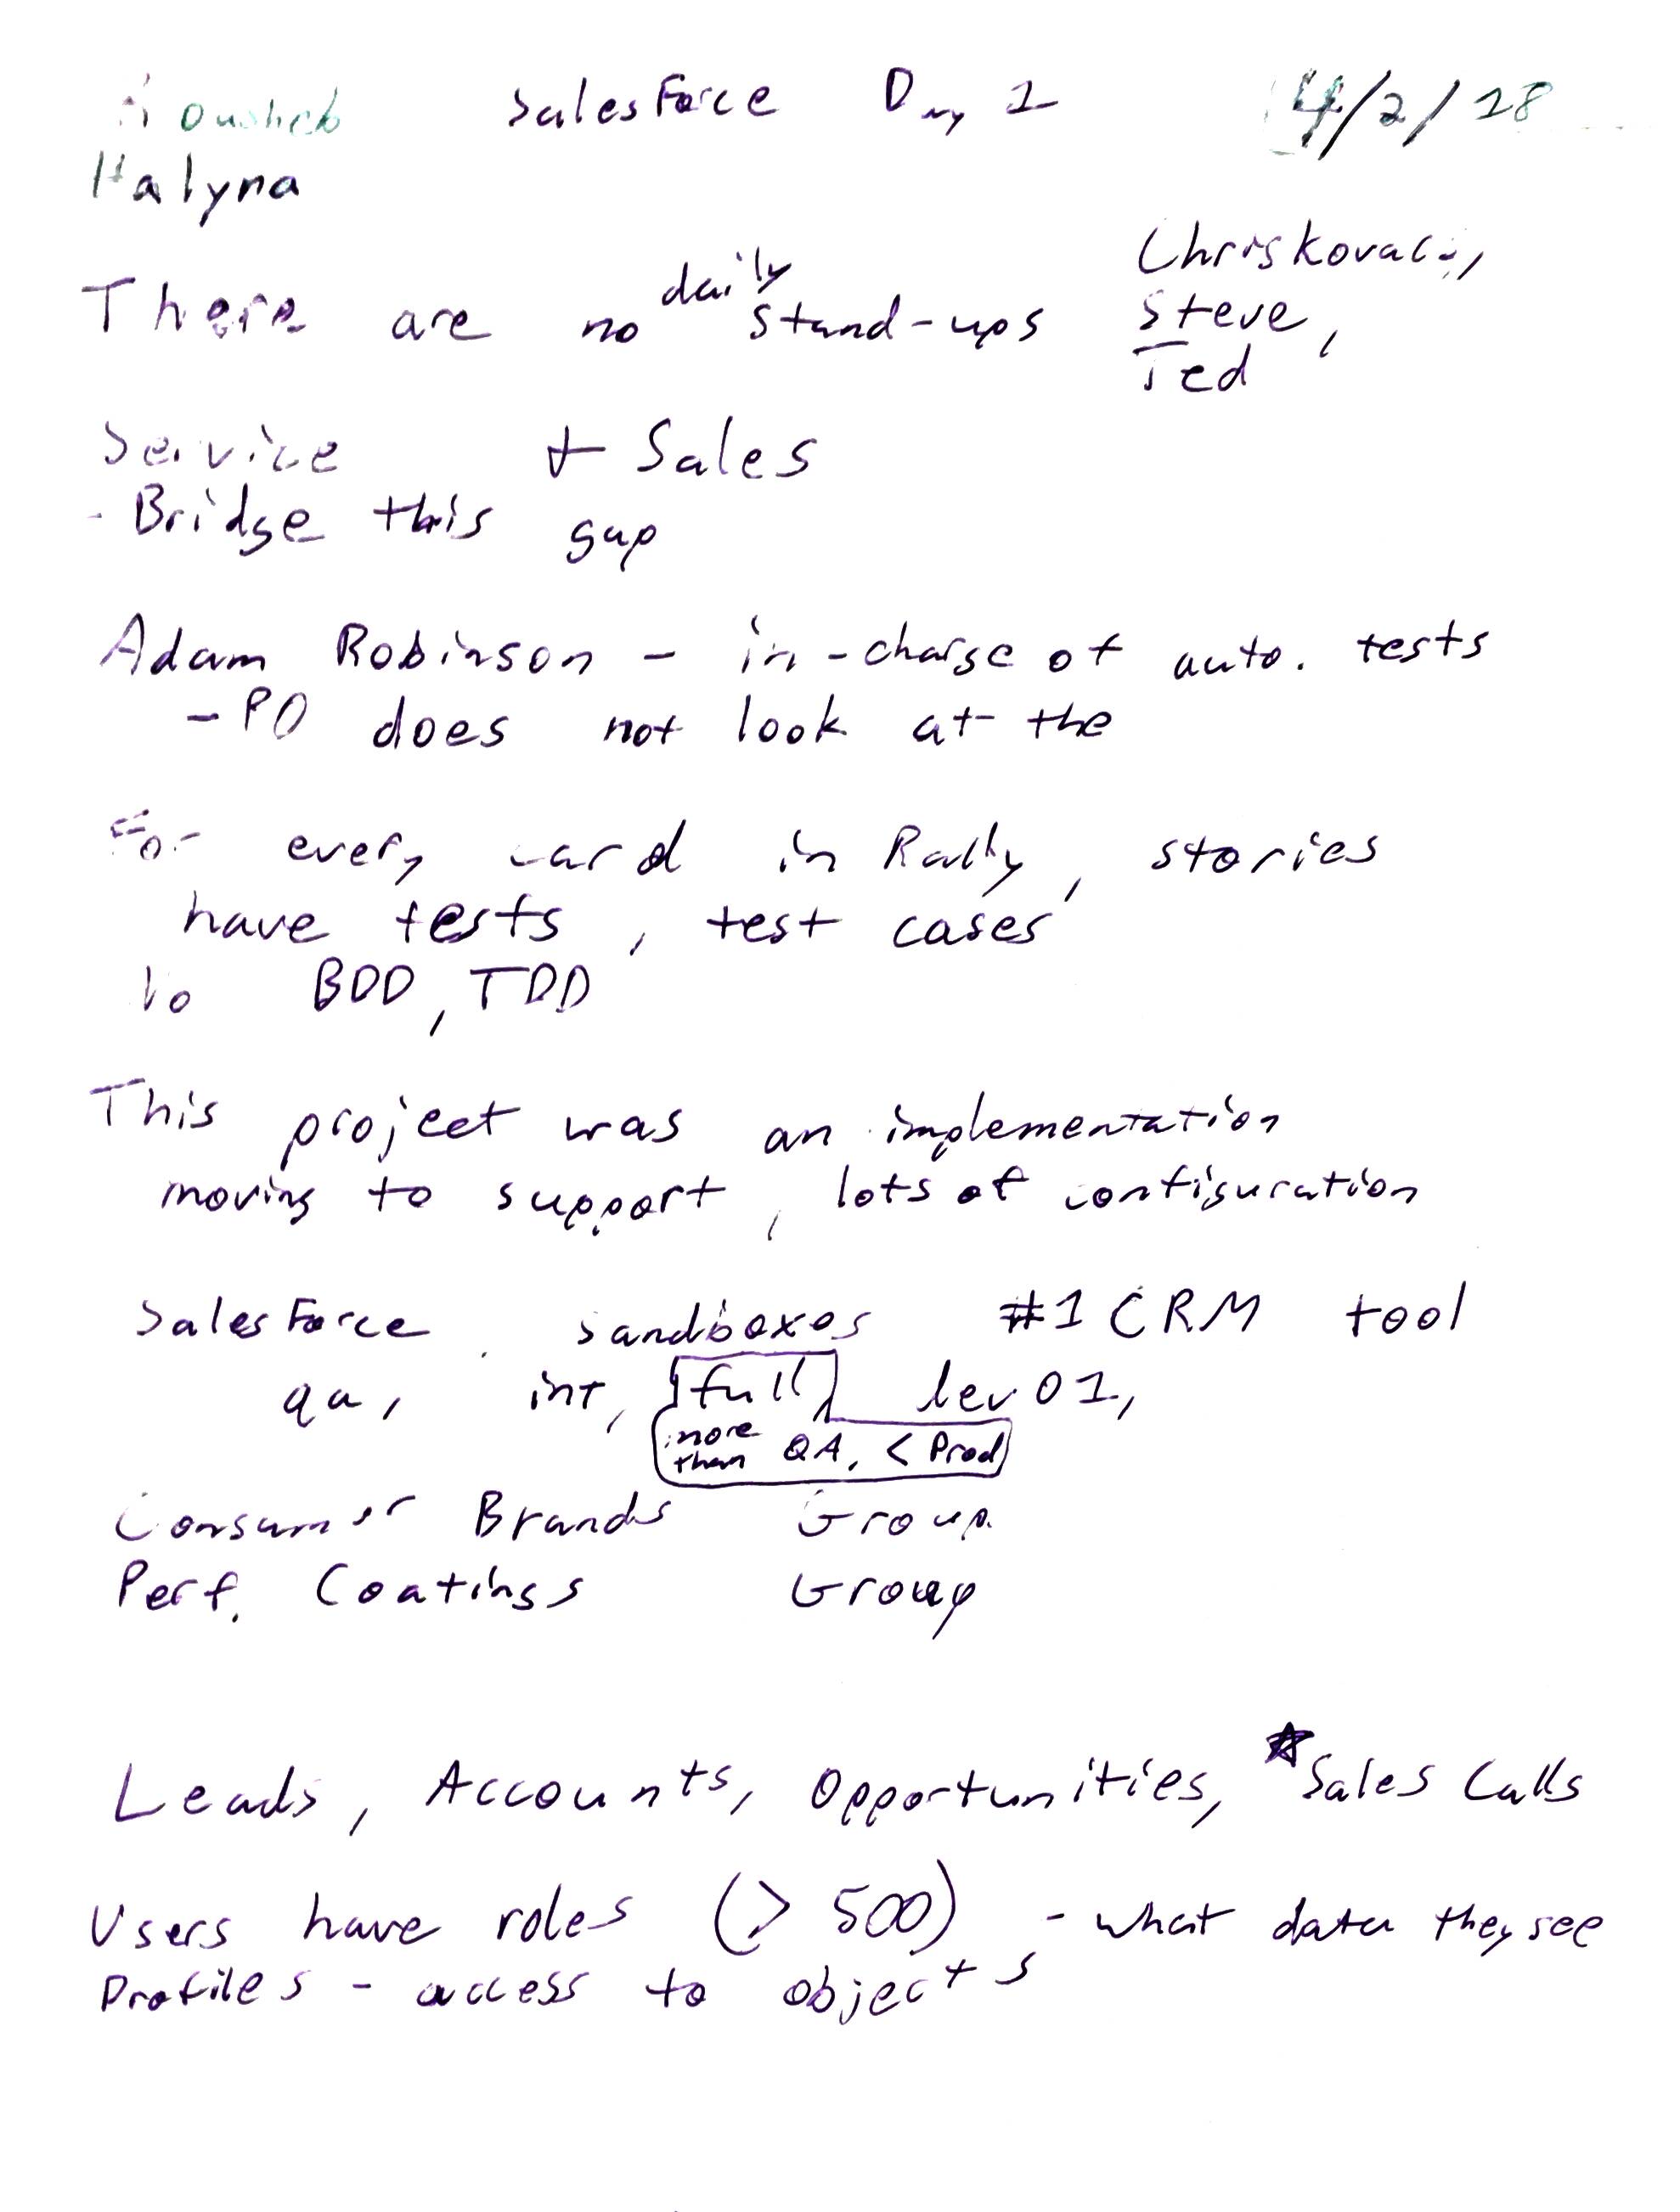 SalesForce Day 1 4/2/18
Halyna
There are no daily stand-ups
Chris Kovac
Steve,
Ted
Service + Sales
- Bridge this gap
Adam Robinson - in-charge of auto. tests
- PO does not look at the
For every card in Rally, stories
have tests, test cases
BDD, TDD
This project was an implementation
moving to support, lots of configuration
SalesForce sandboxes #1 CRM tool
qa, int, full, dev01,
more than QA, < Prod
Consumer Brands Group
Perf. Coatings Group
Leads, Accounts, Opportunities, *Sales Calls
Users have roles (> 500) - what data they see
Profiles - access to objects